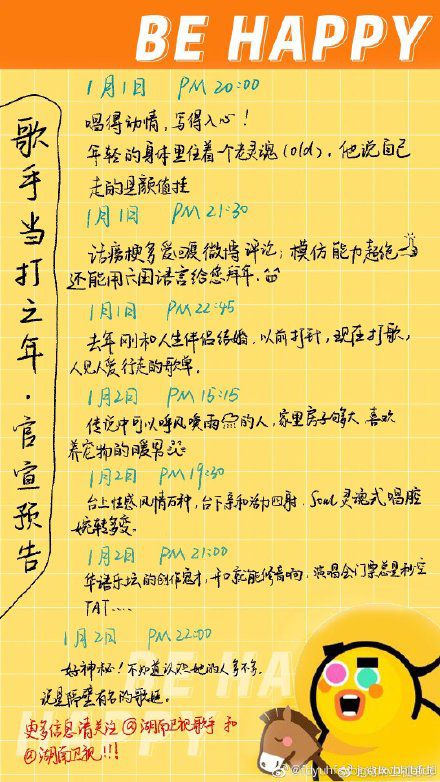 BE HAPPY
歌手当打之年·官宣预告
1月1日 PM 20:00
唱得动情，写得入心！
年轻的身体里住着一个老灵魂(old)，他说自己
走的是颜值挂
1月1日 PM 21:30
话痨梗多爱回复微博评论；模仿能力超绝
还能用六国语言给您拜年.
1月1日 PM 22:45
去年刚和人生伴侣结婚.以前打针，现在打歌，
人见人爱行走的歌单.
1月2日 PM 15:15
传说中可以呼风唤雨的人，家里房子够大 喜欢
养宠物的暖男
1月2日 PM 19:30
台上性感风情万种，台下亲和活力四射. Soul灵魂式唱腔
婉转多变.
1月2日 PM 21:00
华语乐坛的创作鬼才，开口就能修音响，演唱会门票总是秒空
TAT....
1月2日 PM 22:00
好神秘！不知道认识她的人多不多.
说是隔壁有名的歌姬.
更多信息请关注@湖南卫视歌手 和
@湖南卫视!!!
BE HA
HAPPY